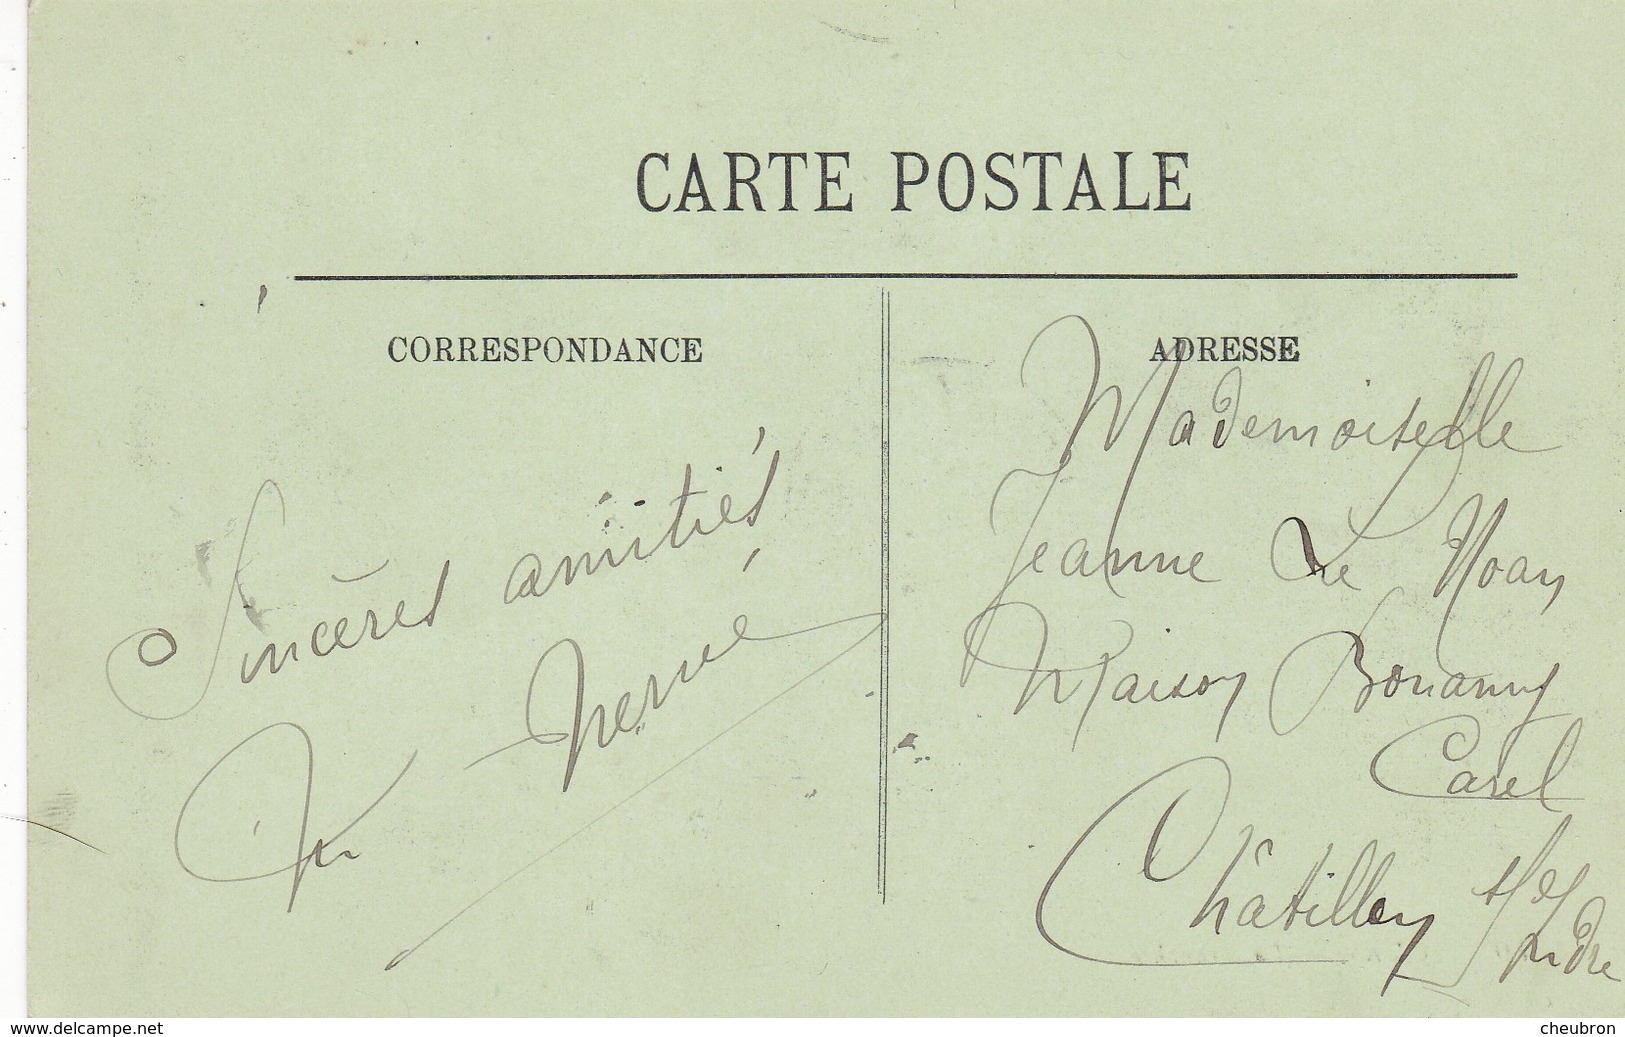 CARTE POSTALE
CORRESPONDANCE
Sincères amitiés
hervé
ADRESSE
Mademoiselle
Jeanne Le Noan
Maison Bonamy
Carel
Châtillon s/
Indre
www.delcampe.net
cheubron